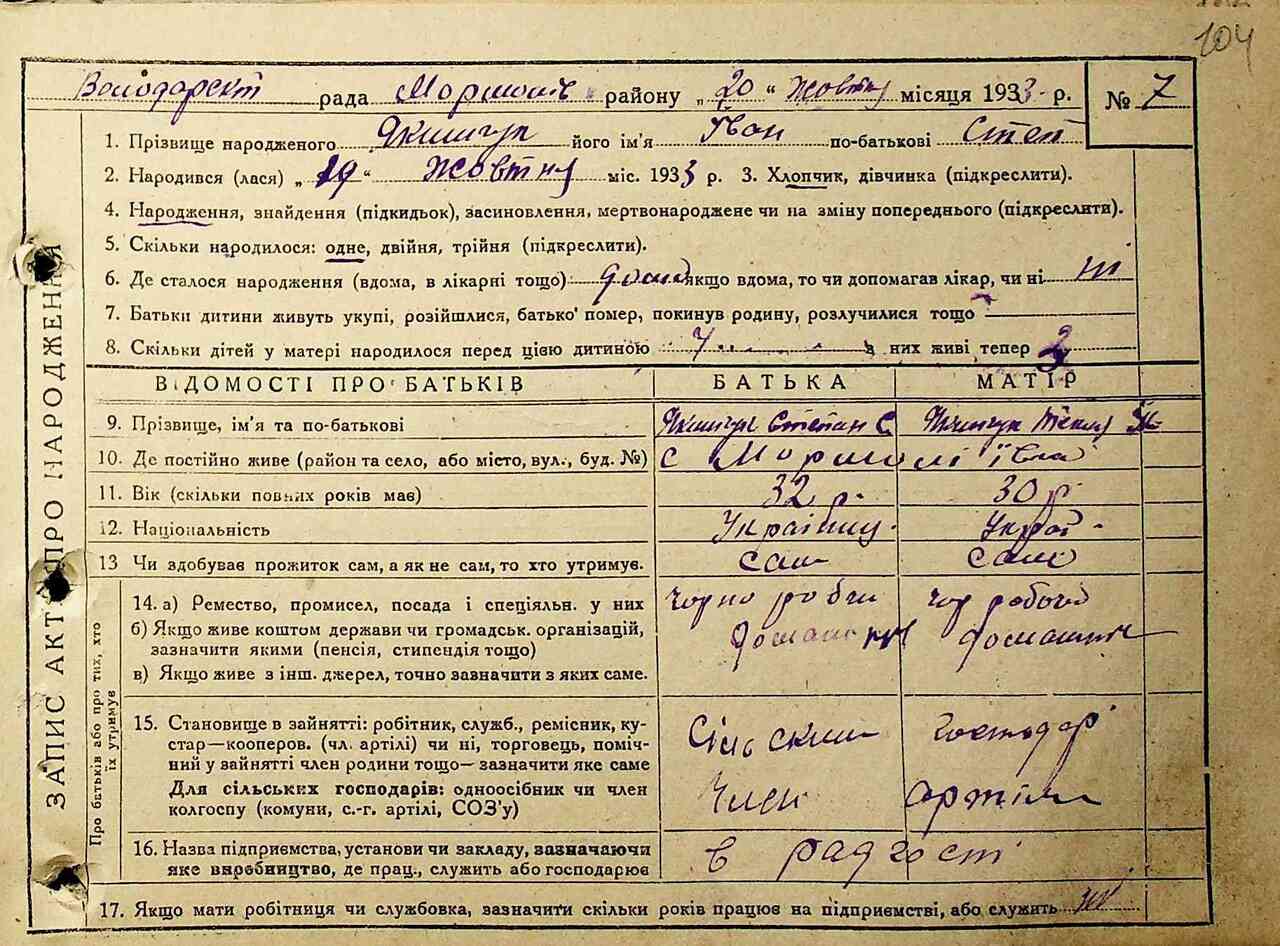 104
Володарск рада району „20“ Жовтня місяця 1933 р. № 7
1. Прізвище народженого Якимчук його ім'я Іван по-батькові Степ
2. Народився (лася) „19“ Жовтня міс. 1933 р. 3. Хлопчик, дівчинка (підкреслити).
4. Народження, знайдення (підкидьок), засиновлення, мертвонароджене чи на зміну попереднього (підкреслити).
5. Скільки народилося: одне, двійня, трійня (підкреслити).
6. Де сталося народження (вдома, в лікарні тощо) дома якщо вдома, то чи допомагав лікар, чи ні ні
7. Батьки дитини живуть укупі, розійшлися, батько помер, покинув родину, розлучилися тощо
8. Скільки дітей у матері народилося перед цією дитиною з них живі тепер 3
ВІДОМОСТІ ПРО БАТЬКІВ БАТЬКА МАТІР
9. Прізвище, ім'я та по-батькові Якимчук Степан С. Якимчук Текля
10. Де постійно живе (район та село, або місто, вул., буд. №) с
11. Вік (скільки повних років має) 32 р. 30 р.
12. Національність Українец. Украї.
13 Чи здобував прожиток сам, а як не сам, то хто утримує. сам сама
14. а) Ремество, промисел, посада і спеціяльн. у них чорно робчи чор робочи
б) Якщо живе коштом держави чи громадськ. організацій,
зазначити якими (пенсія, стипендія тощо)
в) Якщо живе з інш. джерел, точно зазначити з яких саме.
15. Становище в зайнятті: робітник, служб., ремісник, ку-
стар—кооперов. (чл. артілі) чи ні, торговець, поміч-
ний у зайнятті член родини тощо— зазначити яке саме
Сільский господар
Для сільських господарів: одноосібник чи член
колгоспу (комуни, с.-г. артілі, СОЗ'у)
Член артіли
16. Назва підприємства, установи чи закладу, зазначаючи
яке виробництво, де прац., служить або господарює
в радгості
17. Якщо мати робітниця чи службовка, зазначити скільки років працює на підприємстві, або служить ні
ЗАПИС АКТУ ПРО НАРОДЖЕННЯ
Про батьків або про тих, хто
їх утримує